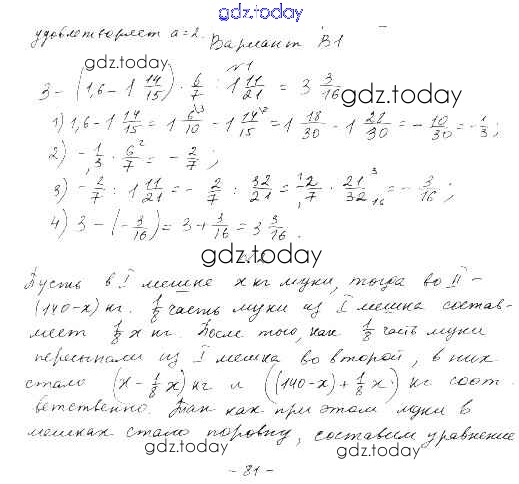 gdz.today
удовлетворяет a=2. Вариант В1
gdz.today
№1
3 - (1,6 - 1 14/15) · 6/7 : 1 11/21 = 3 3/16
gdz.today
1) 1,6 - 1 14/15 = 1 6/10 - 1 14/15 = 1 18/30 - 1 28/30 = - 10/30 = - 1/3;
2) - 1/3 · 6/7 = - 2/7;
3) - 2/7 : 1 11/21 = - 2/7 : 32/21 = 2/7 · 21/32 = - 3/16;
4) 3 - (- 3/16) = 3 + 3/16 = 3 3/16.
gdz.today
№2
Пусть в I мешке x кг муки, тогда во II -
(140-x) кг. 1/8 часть муки из I мешка состав-
ляет 1/8 x кг. После того, как 1/8 часть муки
пересыпали из I мешка во второй, в них
стало (x - 1/8 x) кг и ((140-x) + 1/8 x) кг соот-
ветственно. Так как при этом муки в
мешках стало поровну, составим уравнение
gdz.today
- 81 -